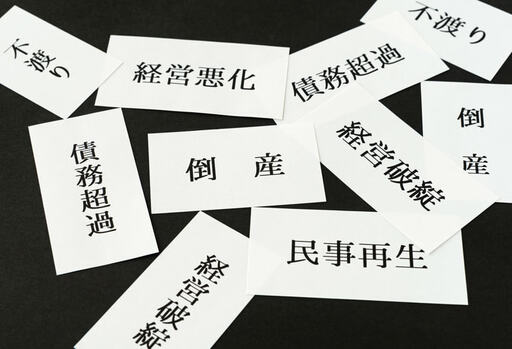 不渡り
経営悪化
債務超過
不渡り
債務超過
倒産
経営破綻
倒産
経営破綻
民事再生